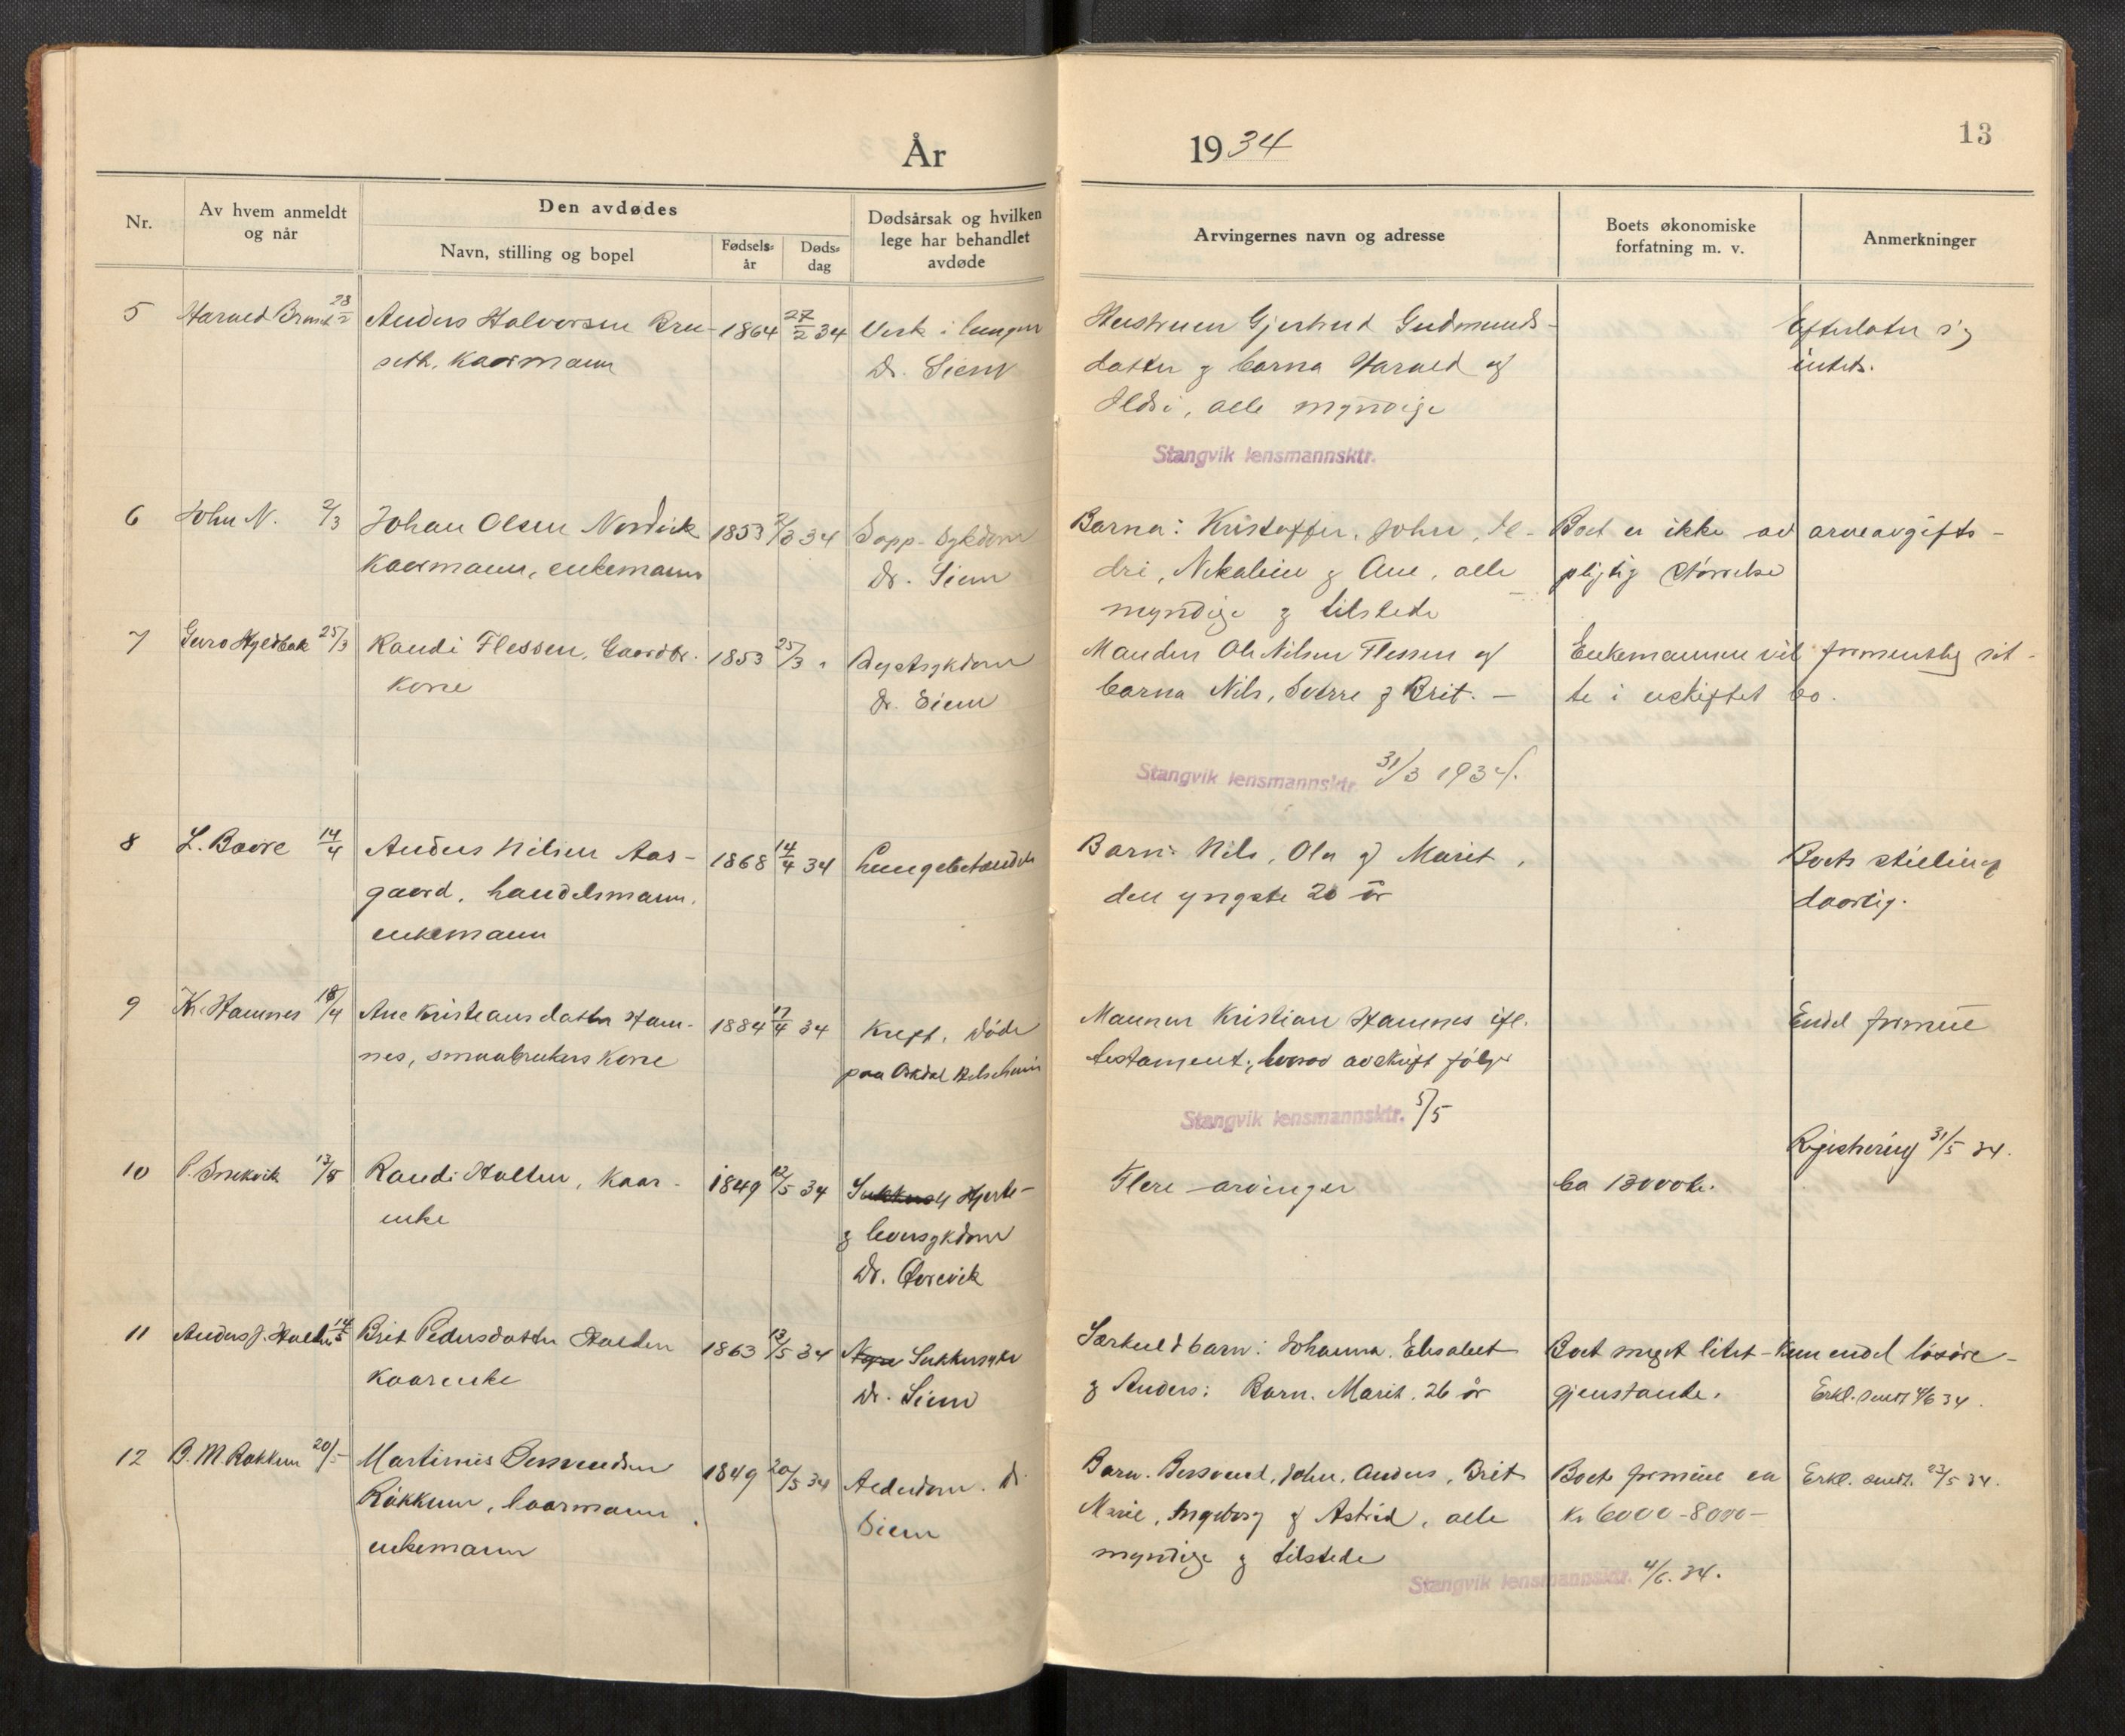 År 1934
13
Nr.
Av hvem anmeldt
og når
Den avdødes
Navn, stilling og bopel
Fødsels-
år
Døds-
dag
Dødsårsak og hvilken
lege har behandlet
avdøde
Arvingernes navn og adresse
Boets økonomiske
forfatning m. v.
Anmerkninger
5 Harald 28/2 Anders Halvorsen Bru- 1864 27/2 34 Verk i lungen Hustruen Gjertrud Gudmunds- Efterlater sig
seth, kaarmann Dr. Siem datter og barna Harald og intet.
Ildri, alle myndige
Stangvik lensmannsktr.
6 John N. 2/3 Johan Olsen Nordvik 1853 2/3 34 Barna: Kristoffer, John, Il- Boet er ikke av arveavgifts-
Kaarmann, enkemann Dr. Siem dri, Nikoline og Ane, alle pligtig størrelse
myndige og tilstede
7 Guro Hyldbak 25/3 Randi Flessen, Gaardbr. 1853 25/3 " Manden Ole Nilsen Flessen og Enkemannen vil formentlig sit-
kone Dr. Siem barna Nils, Sverre og Brit. — te i uskiftet bo.
Stangvik lensmannsktr. 31/3 1934.
8 L. Bævre 14/4 Anders Nilsen Aas- 1868 14/4 34 Lungebetændelse Barn: Nils, Ola og Marit, Boets stilling
gaard, handelsmann, den yngste 20 år daarlig.
enkemann
9 Kr. Hamnes 18/4 Ane Kristiansdatter Ham- 1884 17/4 34 Kreft, døde Mannen Kristian Hamnes ifl. Endel formue
nes, smaabrukers kone paa Orkdal testament, hvorav avskrift følger
Stangvik lensmannsktr. 5/5
Registrering 31/5 34.
10 P. 13/5 Randi Halten, Kaar- 1849 12/5 34 Hjerte- Flere arvinger ca 13000 kr.
enke og leversykdom
Dr.
11 Anders J. Halten 14/5 Brit Pedersdatter Halten 1863 13/5 34 Sukkersyke Særkuldbarn: Johanna, Elisabet Boet meget litet - Kun endel løsøre-
Kaarenke Dr. Siem og Anders: Barn. Marit. 26 år gjenstande. Erkl. sendt 4/6 34.
12 B. M. Røkkum 20/5 Martinus Bersvendsen 1849 20/5 34 Alderdom. Dr. Barn. Bersvend, John, Anders, Brit Boets formue ca Erkl. sendt. 23/5 34.
Røkkum, kaarmann Siem Marie, Ingeborg og Astrid, alle Kr 6000-8000-
enkemann myndige og tilstede
Stangvik lensmannsktr. 4/6. 34.